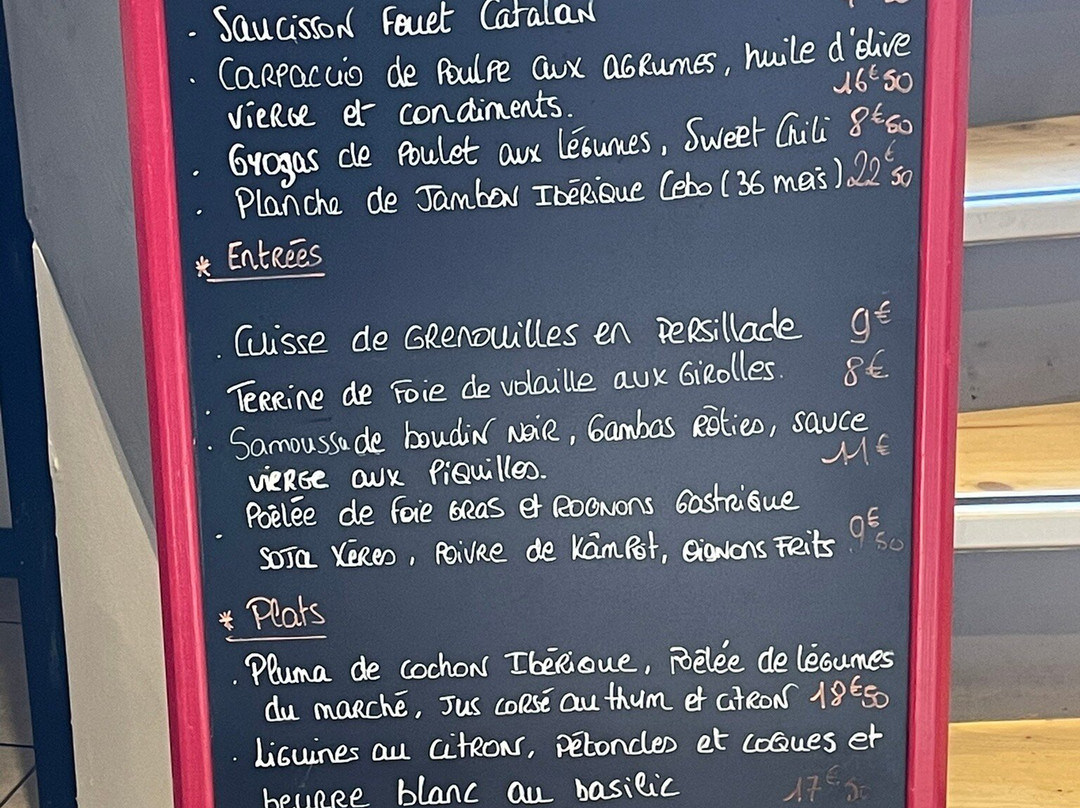 . Saucisson Fouet Catalan
. Carpaccio de Poulpe aux agrumes, huile d'olive
vierge et condiments. 16€50
. Gyozas de Poulet aux légumes, Sweet Chili 8€50
. Planche de Jambon Ibérique Cebo (36 mois) 22€50
* Entrées
. Cuisse de Grenouilles en Persillade 9€
. Terrine de Foie de volaille aux Girolles. 8€
. Samoussa de boudin noir, Gambas Rôties, sauce
vierge aux Piquilles. 11€
. Poêlée de foie gras et Rognons Gastrique
soja Xérès, Poivre de Kâmpot, oignons Frits 9€50
* Plats
. Pluma de cochon Ibérique, Poêlée de légumes
du marché, Jus corsé au thym et citron 18€50
. Liguines au citron, Pétoncles et coques et
beurre blanc au basilic 17€50